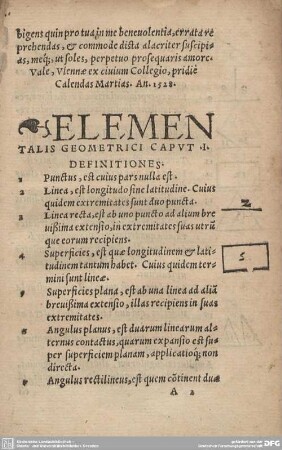 bigens quin pro tua in me beneuolentia, errata re
prehendas, & commode dicta alacriter suscipi-
as, meq́;, ut soles, perpetuo prosequaris amore.
Vale, Viennæ ex ciuium Collegio, pridiè
Calendas Martias. An. 1528.
ELEMEN
TALIS GEOMETRICI CAPVT .I.
DEFINITIONES.
1 Punctus, est cuius pars nulla est.
2 Linea, est longitudo sine latitudine. Cuius
quidem extremitates sunt duo puncta.
3 Linea recta, est ab uno puncto ad alium bre
uißima extensio, in extremitates suas utrũ
que eorum recipiens.
4 Superficies, est quæ longitudinem & lati-
tudinem tantum habet. Cuius quidem ter-
mini sunt lineæ.
5 Superficies plana, est ab una linea ad aliã
breuißima extensio, illas recipiens in suas
extremitates.
6 Angulus planus, est duarum linearum al-
ternus contactus, quarum expansio est su-
per superficiem planam, applicatioq́; non
directa.
7 Angulus rectilineus, est quem cõtinent duæ
A 2
2
5